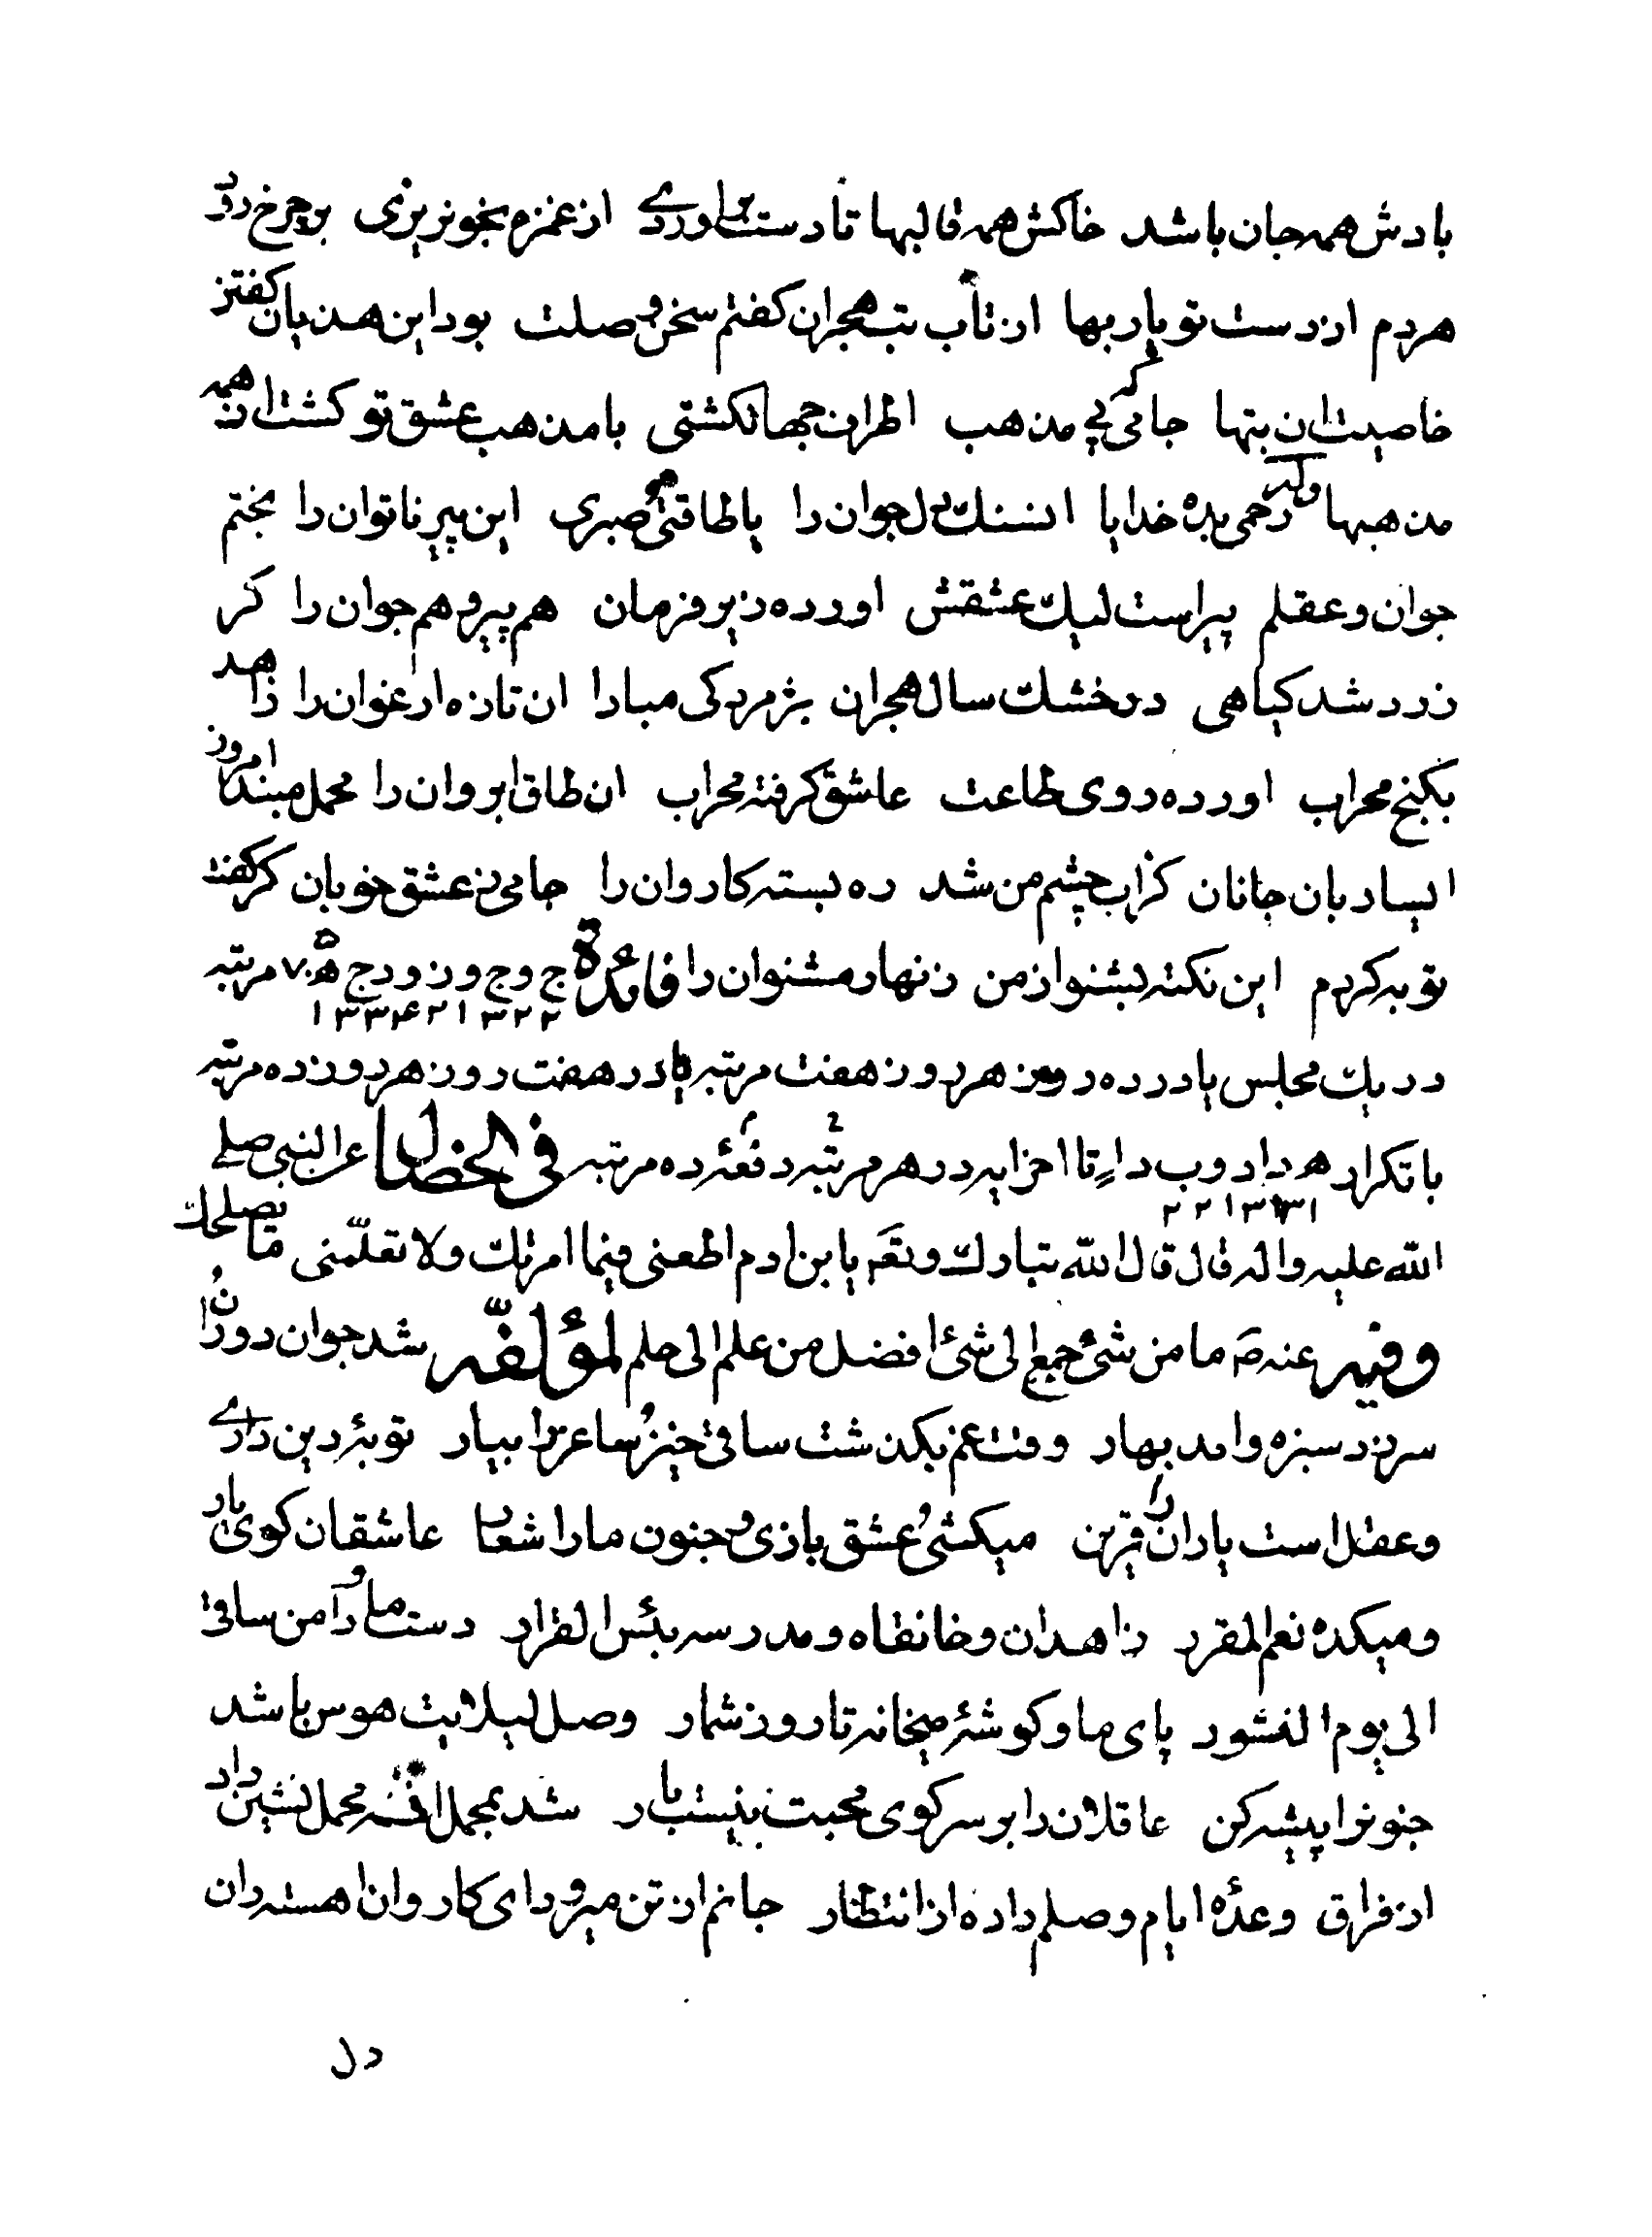 بادش همه جان باشد خاکش همه قالبها تا دست براوردی از غمزه بخونریزی بر چرخ رود
هر دم از دست تو یاربها از تاب تب هجران کفتم سخن وصلت بود این هذیان کفتن
خاصیت ان تبها جامی که پی مذهب اطراف جهان کشتی با مذهب عشق تو کشت از همه
مذهبها وله رحمی بده خدایا ان سنك دل جوان را یا طاقتی و صبری این پیر ناتوان را بختم
جوان و عقلم پیراست لیك عشقش اورده زیر فرمان هم پیر و هم جوان را کر
زرد شد کیاهی در خشك سال هجران پژمردکی مبادا ان تازه ارغوان را زاهد
بکنج محراب اورده روی طاعت عاشق کرفته محراب ان طاق ابروان را محمل مبند امروز
ای ساربان جانان کز اب چشم من شد ره بسته کاروان را جامی ز عشق خوبان کر کفت
توبه کردم این نکته بشنو از من زنهار مشنوان را فائدة ج و ج و ز و د ج ه ۷۰ مرتبه
۲ ۲ ۳ ۱ ۲ ۴ ۳ ۳ ۱
در یك مجلس یا در ده روز هر روز هفت مرتبه یا در هفت روز هر روز ده مرتبه
با تکرار ه د ا د و ب د ا تا اخر ایه در هر مرتبه دفعهٔ ده مرتبه فی الخصال عن النبی صلی
الله علیه واله قال قال الله تبارك وتعہ یا بن ادم اطعنی فیما امرتك ولا تعلّمنی ما یصلحك
وفیه عنه صہ ما من شئ جمع الی شئ افضل من علم الی حلم لمؤلفّه شد جوان دوران
سر زد سبزه وامد بهار وقت غم بکذشت ساقی خیز و ساغر را بیار توبهٔ دین داری
وعقل است یاران را قرین میکشی و عشق بازی و جنون ما را شعار عاشقان کوی یار
ومیکده نعم المقر زاهدان وخانقاه ومدرسه بئس القرار دست ما و دامن ساقی
الی یوم النشور پای ما وکوشهٔ میخانه تا روز شمار وصل لیلایت هوس باشد
جنونرا پیشه کن عاقلان را بر سر کوی محبت نیست بار شد بمحمل محمل نشین داد
از فراق وعدهٔ ایام وصلم داده از انتظار جانم از تن میرود ای کاروان اهسته ران
دل